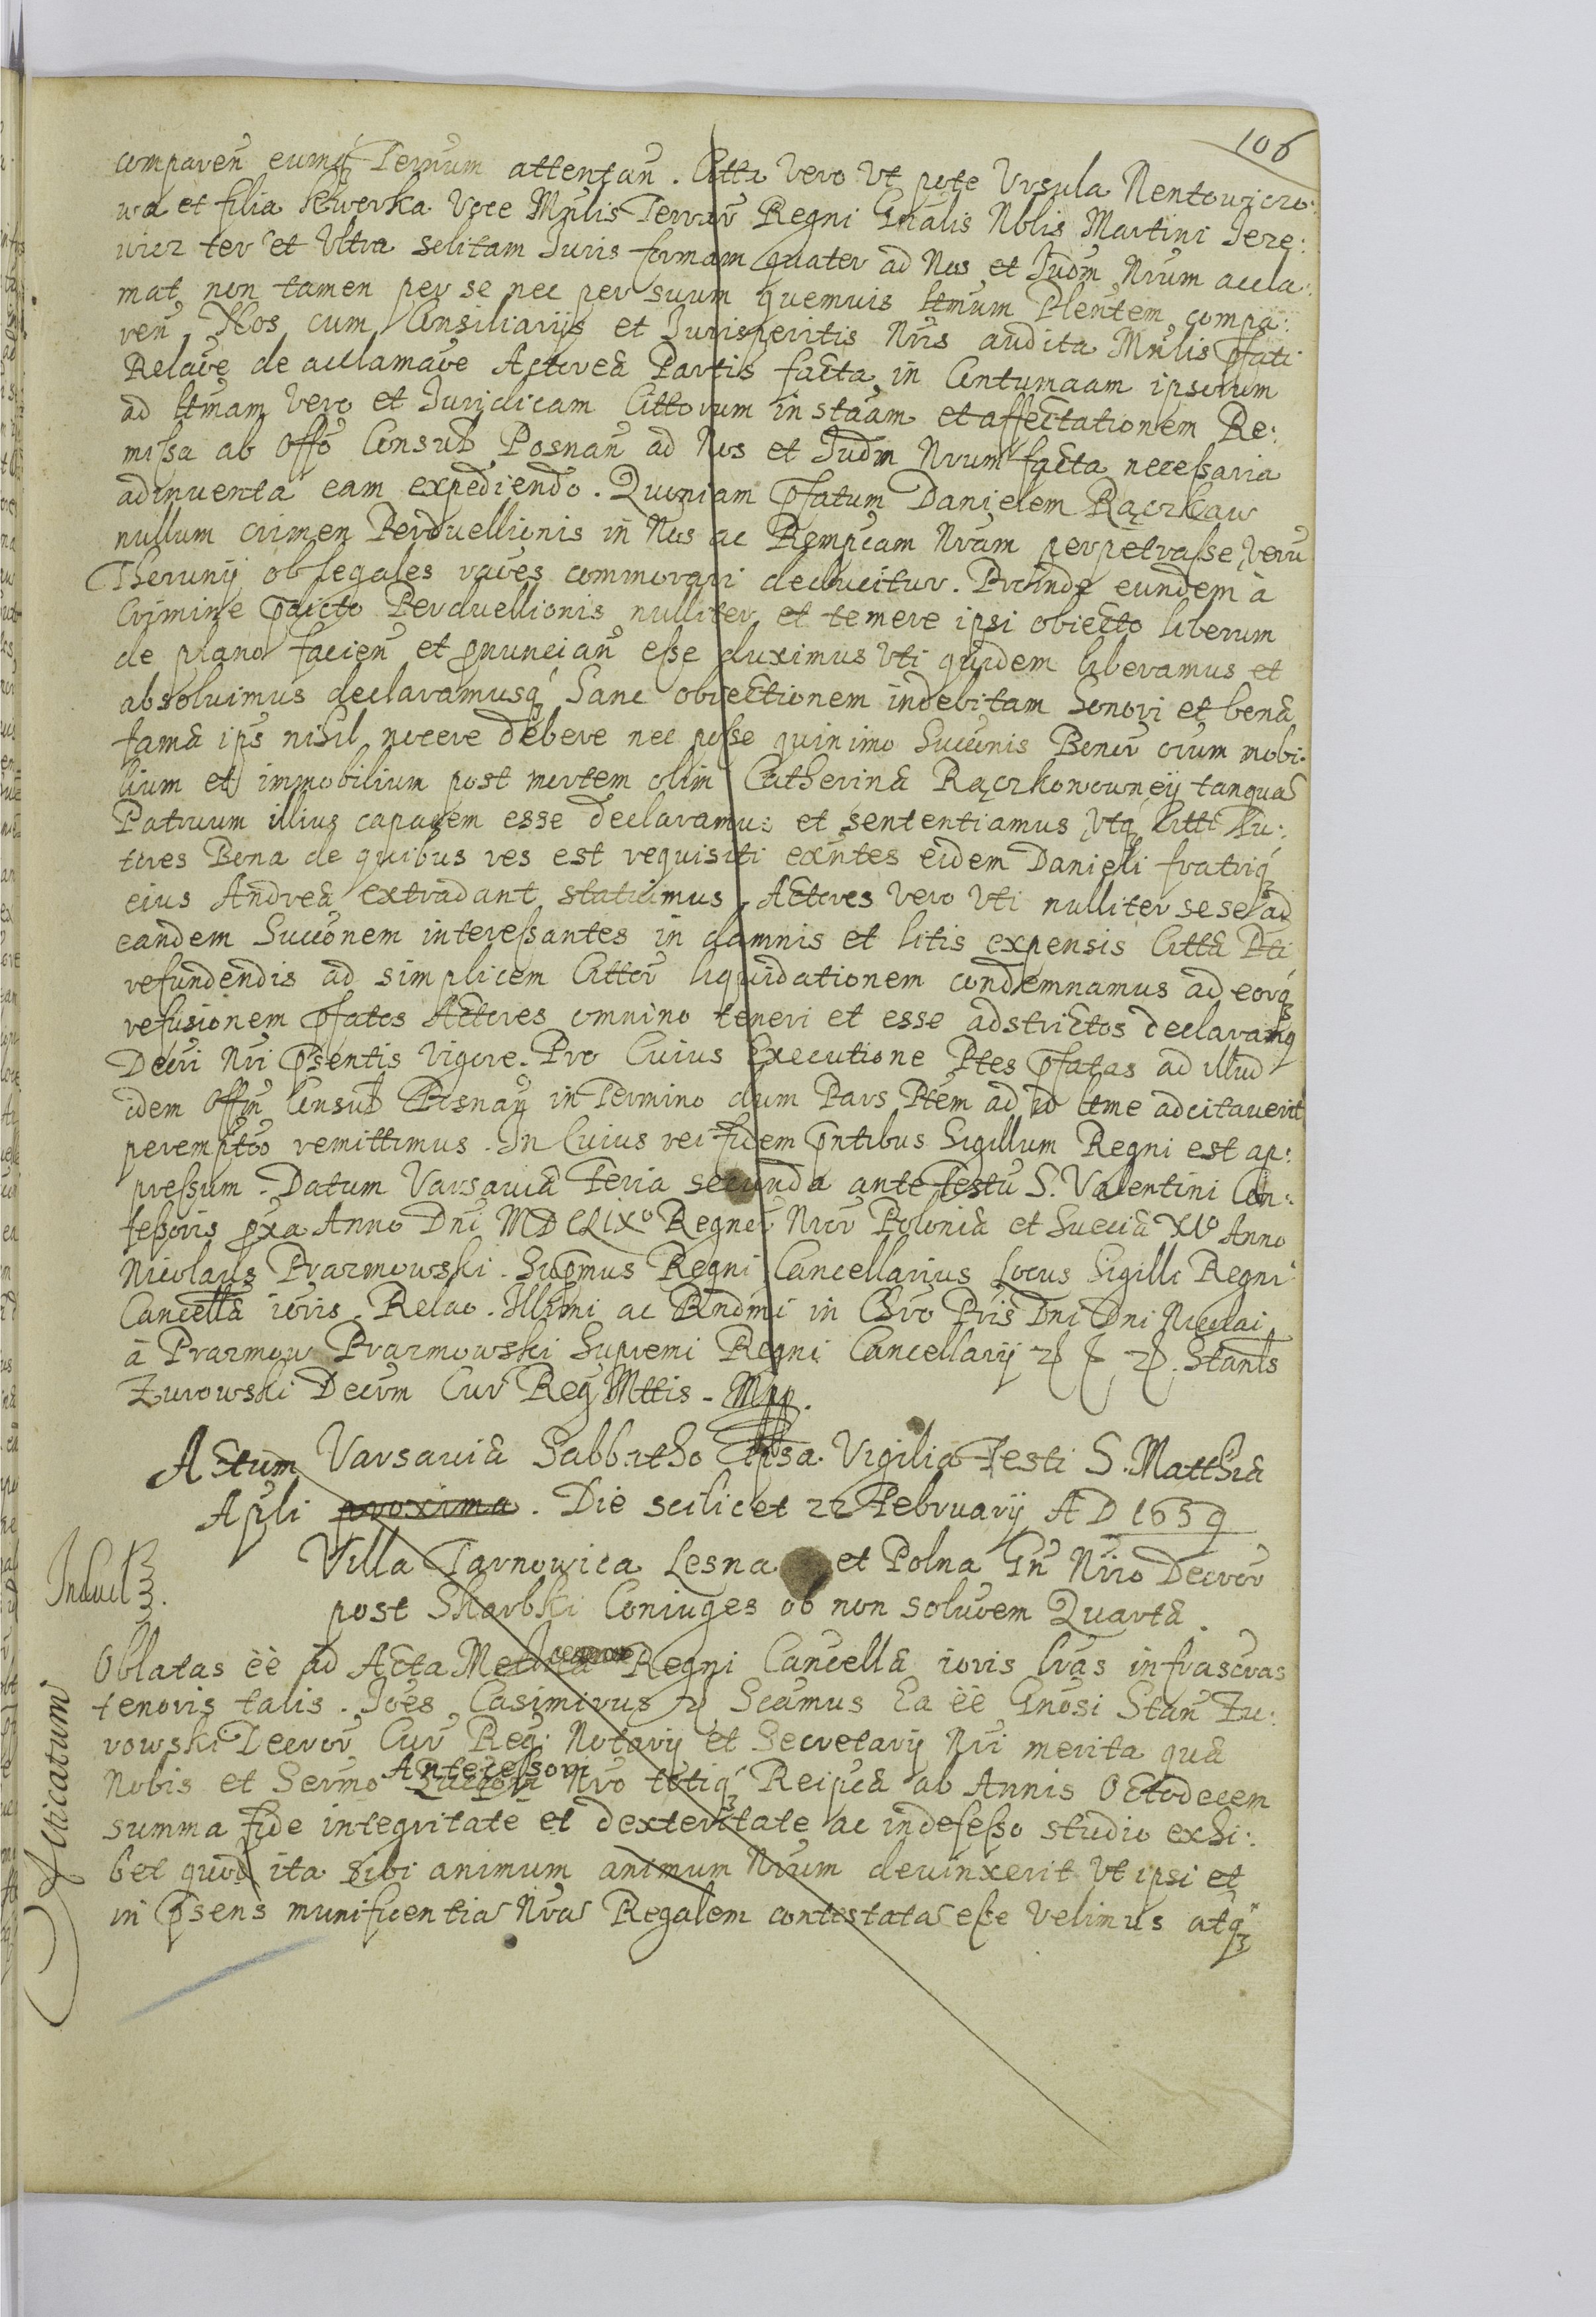 106
comparen̄ eumq₃ Ternum attentan̄. Citta Vero Vt pote Vrsula Nentowiczo:
wa et filia Siwerka Voce Mn̄lis Terrar̄ Regni Gn̄alis Nblis Martini Jere:
wicz ter et Vltra solitam Juris formam quater ad Nos et Judm̄ Nr̄um accla:
mat non tamen per se nec per suum quemuis ltmum Plen̄tem compa:
ren̄ Nos cum Consiliarijs et Jurisperitis Nr̄is audita Mn̄lis p̄fati
Relaōe de acclamaōe Actoreæ Partis facta in Contumaam ipsorum
ad ltmam Vero et Juridicam Cittorum instāam et affectationem Re:
missa ab Offō Consub Posnan̄ ad Nos et Judm̄ Nr̄um facta necessaria
adinuenta eam expediendo. Quoniam p̄fatum Danielem Rączkaw
nullum crimen Perduellionis in Nos ac Rempcam Nr̄am perpetrasse Verū
Thorunij ob legales raōes commorari deducitur. Proinde eundem à
Crimine p̄dicto Perduellionis nulliter et temere ipsi obiecto liberum
de plano facien̄ et p̄nuncian̄ esse duximus Vti quidem liberamus et
absoluimus declaramusq₃ hanc obiectionem indebitam honori et bonæ
famæ ips nihil nocere debere nec posse quinimo Succonis Bonor̄ oium mobi:
lium et immobilium post mortem olim Catherinæ Rączkonowneij tanquā
Patruum illius capacem esse declaramus et sententiamus Vtq₃ Citti Tu:
tores Bona de quibus res est requisiti exn̄tes eidem Danieli fratriq₃
eius Andreæ extradant statuimus, Actores Vero Vti nulliter sese ad
eandem Succonem interessantes in damnis et litis expensis Cittæ Pti
refundendis ad simplicem Cittor̄ liquidationem condemnamus ad eorq₃
refusionem p̄fatos Actores omnino teneri et esse adstrictos declaramq
Decri Nr̄i p̄sentis Vigore. Pro Cuius Executione Ptes p̄fatas ad illud
idem Offm̄ Consub Posnan̄ in Termino dum Pars Ptem ad id ltme adcitauerit
peremptōo remittimus. In Cuius rei fidem p̄ntibus Sigillum Regni est ap:
pressum. Datum Varsauiæ Feria secunda ante Festū S. Valentini Con:
fessoris p̄xa Anno Dn̄i MDCLIX° Regnor̄ Nr̄or̄ Poloniæ et Sueciæ XI° Anno
Nicolaus Prazmowski. Sup̄mus Regni Cancellarius Locus Sigilli Regni
Cancellæ ioris. Relao. Illmi ac Rndmi in Chro Pris Dni Dni Nicolai
à Prazmow Prazmowski Supremi Regni Cancellarij Stanls
Zurowski Decrm Cur̄ Reg Mttis. Mpp.
Actum Varsauiæ Sabbatho Ipsa Vigilia Festi S. Matthiæ
Apli proxima. Die scilicet 22 Februarij A D 1659
Induct
Villa Tarnowica Lesna et Polna Gn̄ Nr̄o Decror̄
post Skarbki Coniuges ob non soluōem Quartæ.
Acticatum
Oblatas èè ad Acta Metricæ Regni Cancellæ ioris lr̄as infrascras
tenoris talis. Joēs Casimirus Scāmus Ea èè Gn̄osi Stan̄ Zu:
rowski Decror̄ Cur̄ Reg: Notarij et Secretarij Nr̄i merita quæ
Nobis et Sermo Antecessori Nr̄o totiq₃ Reipcæ ab Annis Octodecem
summa fide integritate et dexteritate ac indefesso studio exhi:
bet quod ita sibi animum animum Nr̄um deuinxerit Vt ipsi et
in p̄sens munificentiā Nr̄ā Regalem contestatā esse Velimus atq₃